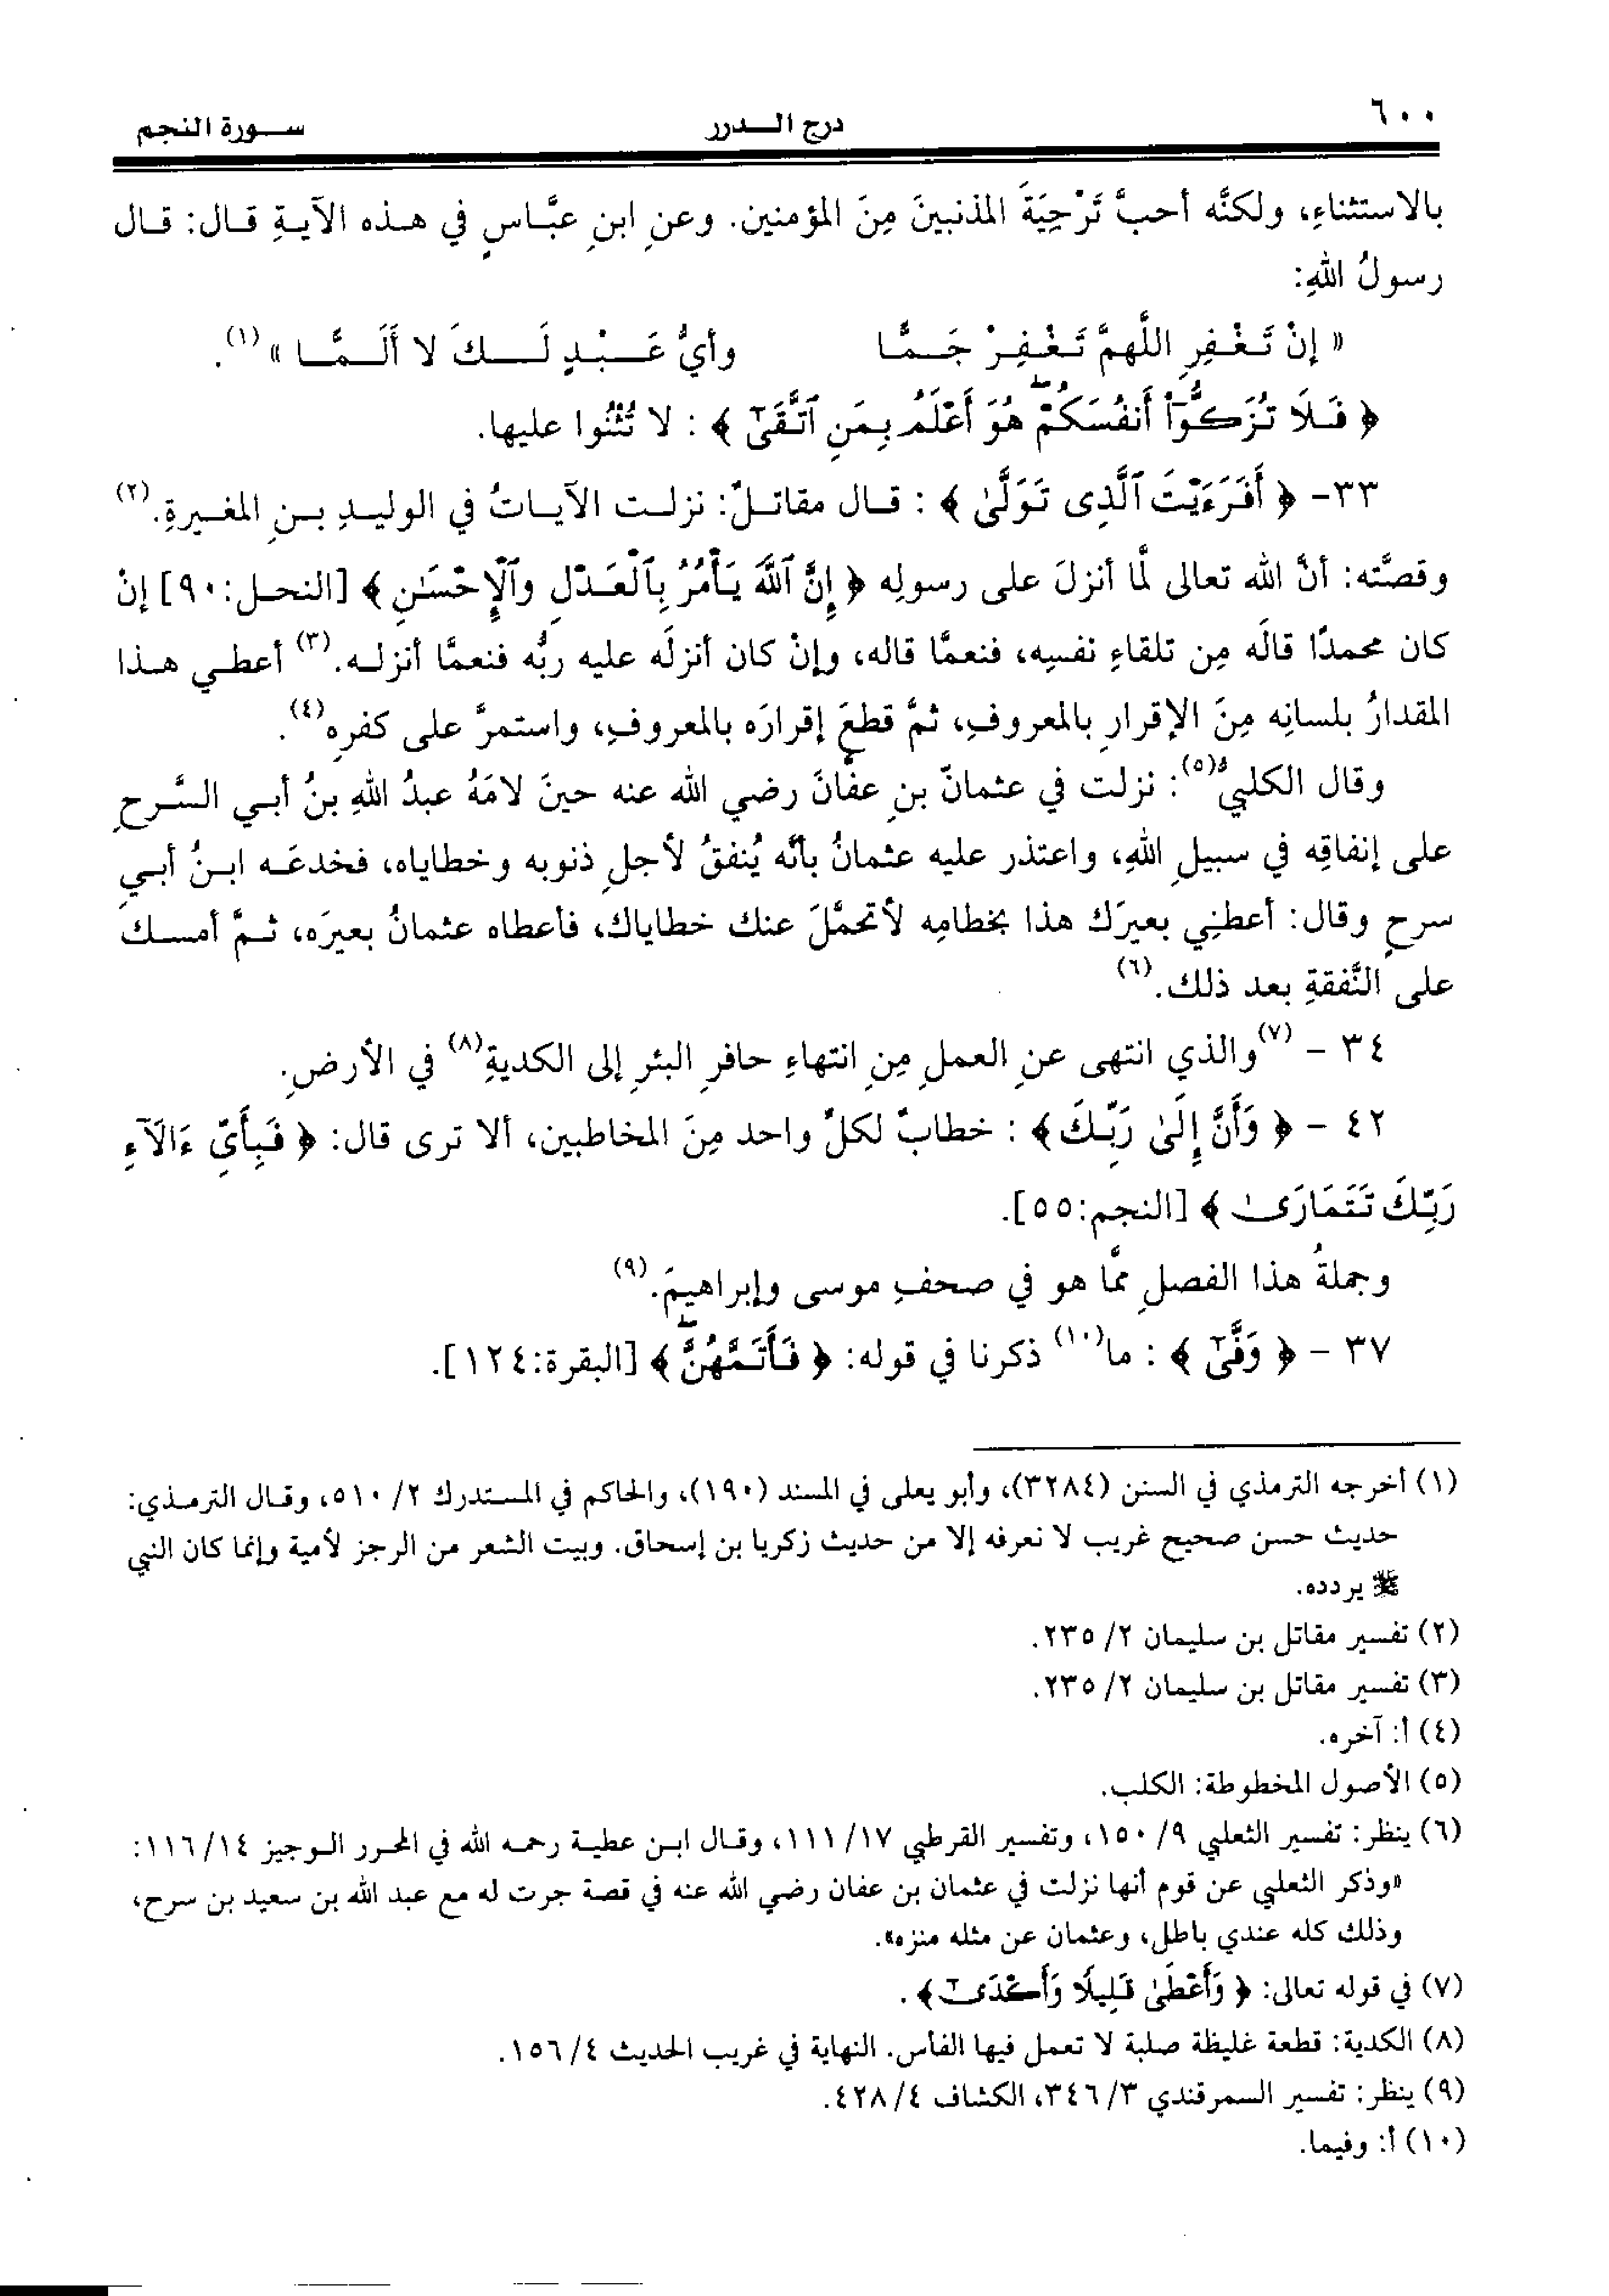 ٦٠٠ درج الـــدرر ســورة النجم
بالاستثناءِ، ولكنَّه أحبَّ تَرْجِيَةَ المذنبينَ مِنَ المؤمنين. وعنِ ابنِ عبَّاسٍ في هـذه الآيـةِ قـال: قـال
رسولُ اللهِ:
« إنْ تَـغْـفِـرِ اللَّهمَّ تَـغْـفِـرْ جَـمَّـا وأيُّ عَـــبْـدٍ لَـــكَ لا أَلَــمَّـــا »(١).
﴿ فَـلَا تُزَكُّوٓا۟ أَنفُسَكُمْ ۖ هُوَ أَعْلَمُ بِمَنِ ٱتَّقَىٰٓ ﴾ : لا تُثْنُوا عليها.
٣٣- ﴿ أَفَرَءَيْتَ ٱلَّذِى تَوَلَّىٰ ﴾ : قـال مقاتـلٌ: نزلـت الآيـاتُ في الوليـدِ بـنِ المغـيرةِ.(٢)
وقصَّته: أنَّ الله تعالى لمَّا أنزلَ على رسولِه ﴿ إِنَّ ٱللَّهَ يَأْمُرُ بِٱلْعَدْلِ وَٱلْإِحْسَٰنِ ﴾ [النحـل:٩٠] إنْ
كان محمدًا قالَه مِن تلقاءِ نفسِه، فنعمَّا قاله، وإنْ كان أنزلَه عليه ربُّه فنعمَّا أنزلـه.(٣) أعطـي هـذا
المقدارُ بلسانِه مِنَ الإقرارِ بالمعروفِ، ثمَّ قطعَ إقرارَه بالمعروفِ، واستمرَّ على كفرِه(٤).
وقال الكلبيُّ(٥): نزلت في عثمانَ بنِ عفَّانَ رضي الله عنه حينَ لامَهُ عبدُ اللهِ بنُ أبـي السَّرحِ
على إنفاقِه في سبيلِ اللهِ، واعتذر عليه عثمانُ بأنَّه يُنفقُ لأجلِ ذنوبه وخطاياه، فخدعَـه ابـنُ أبـي
سرحٍ وقال: أعطـِني بعيرَك هذا بخطامِه لأتحمَّلَ عنك خطاياك، فأعطاه عثمانُ بعيرَه، ثـمَّ أمسـك
على النَّفقةِ بعد ذلك.(٦)
٣٤ - (٧)والذي انتهى عنِ العملِ مِنِ انتهاءِ حافرِ البئرِ إلى الكديةِ(٨) في الأرضِ.
٤٢ - ﴿ وَأَنَّ إِلَىٰ رَبِّكَ ﴾ : خطابٌ لكلِّ واحد مِنَ المخاطبين، ألا ترى قال: ﴿ فَبِأَىِّ ءَالَآءِ
رَبِّكَ تَتَمَارَىٰ ﴾ [النجم:٥٥].
وجملةُ هذا الفصلِ ممَّا هو في صحفِ موسى وإبراهيمَ.(٩)
٣٧ - ﴿ وَفَّىٰٓ ﴾ : ما(١٠) ذكرنا في قوله: ﴿ فَأَتَمَّهُنَّ ۖ ﴾ [البقرة:١٢٤].
(١) أخرجه الترمذي في السنن (٣٢٨٤)، وأبو يعلى في المسند (١٩٠)، والحاكم في المستدرك ٢/ ٥١٠، وقـال الترمـذي:
حديث حسن صحيح غريب لا نعرفه إلا من حديث زكريا بن إسحاق. وبيت الشعر من الرجز لأمية وإنما كان النبي
ﷺ يردده.
(٢) تفسير مقاتل بن سليمان ٢/ ٢٣٥.
(٣) تفسير مقاتل بن سليمان ٢/ ٢٣٥.
(٤) أ: آخره.
(٥) الأصول المخطوطة: الكلب.
(٦) ينظر: تفسير الثعلبي ٩/ ١٥٠، وتفسير القرطبي ١٧/ ١١١، وقـال ابـن عطيـة رحمـه الله في المحرر الـوجيز ١٤/ ١١٦:
«وذكر الثعلبي عن قوم أنها نزلت في عثمان بن عفان رضي الله عنه في قصة جرت له مع عبد الله بن سعيد بن سرح،
وذلك كله عندي باطل، وعثمان عن مثله منزه».
(٧) في قوله تعالى: ﴿ وَأَعْطَىٰ قَلِيلًا وَأَكْدَىٰٓ ﴾.
(٨) الكدية: قطعة غليظة صلبة لا تعمل فيها الفأس. النهاية في غريب الحديث ٤/ ١٥٦.
(٩) ينظر: تفسير السمرقندي ٣/ ٣٤٦، الكشاف ٤/ ٤٢٨.
(١٠) أ: وفيما.